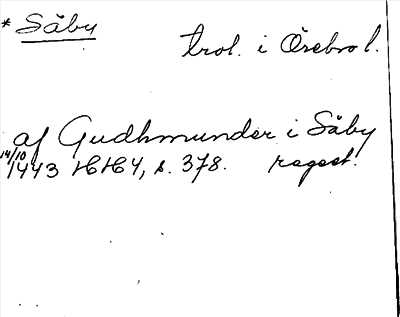 * Såby
trol. i Örebro l.
af Gudhmunder i Såby
14/10 1443 HH4, s. 378. regest.